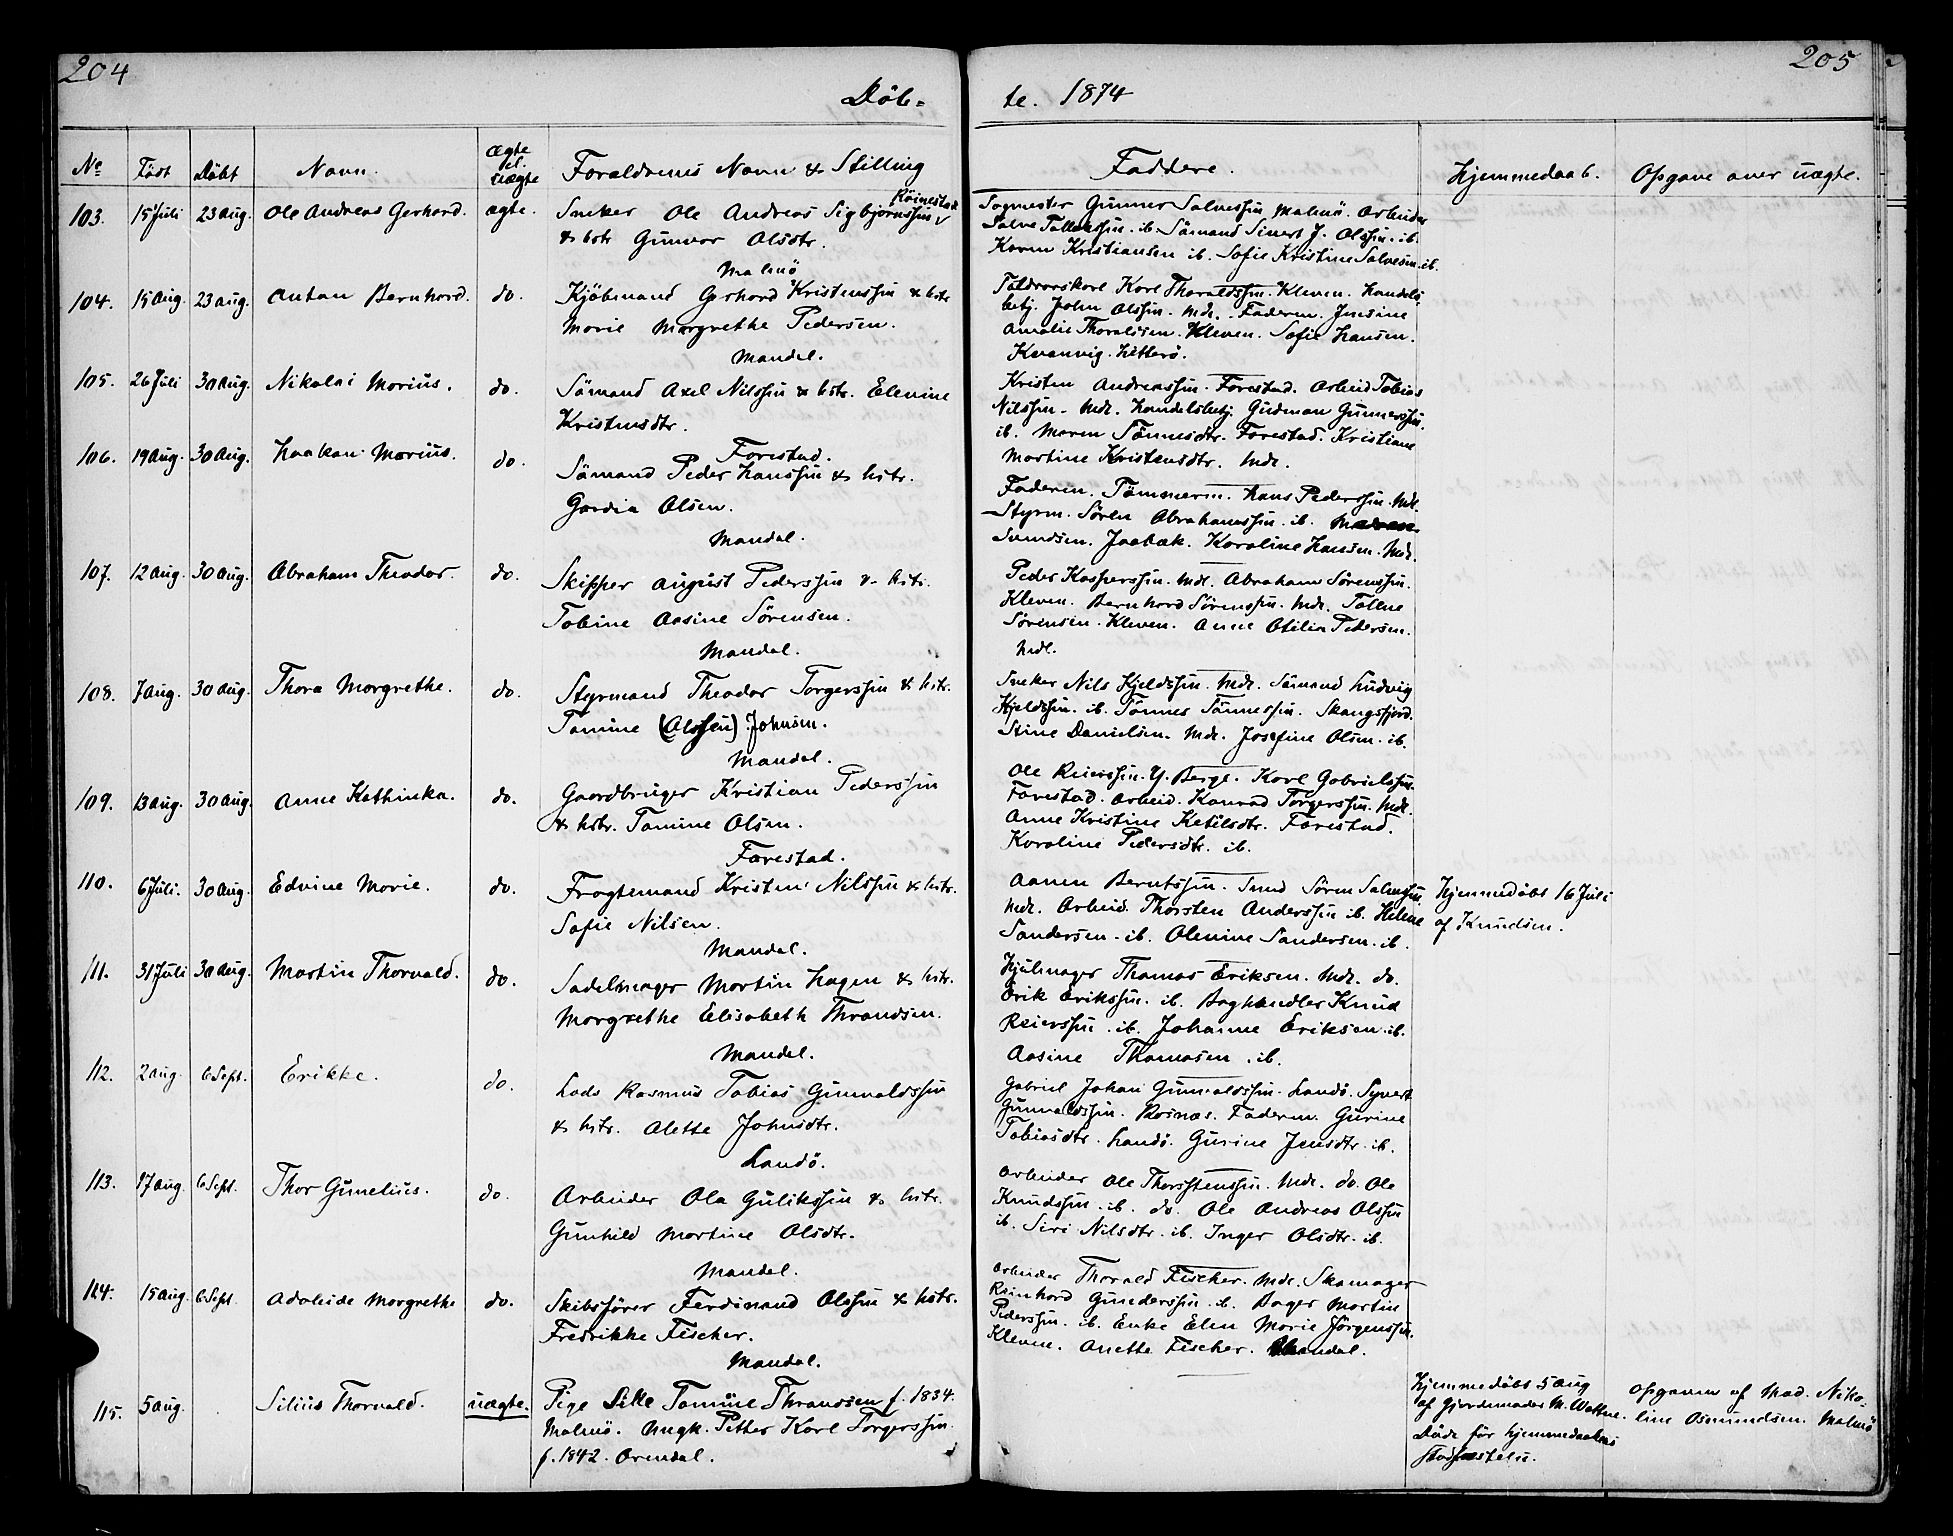 204
205
Döb-
te. 1874
No
Födt
Döbt
Navn.
ægte el. uægte
Forældrenes Navn & Stilling
Faddere.
Hjemmedaab.
Opgave over uægte.
103. 15 Juli 23 Aug. Ole Andreas Gerhard. ægte.
Sneker Ole Andreas Sigbjørnssen
& hstr Gunvor Olsdtr.
Malmö
Gunner Salvessen Malmö. Arbeider
ib. Sömand Sivert J. Olssen. ib.
Karen Kristiansen ib. Sofie Kristine Salvesen. ib.
104. 15 Aug. 23 Aug. Anton Bernhard. do.
Kjöbmand Gerhard Kristenssen & hstr
Marie Margrethe Pedersen.
Mandal.
Karl Tharaldssen. Kleven. Handels-
betj. John Olssen. Mdl. Faderen. Jensine
Amalie Tharaldsen. Kleven. Sofie Hansen.
Kvanvig. Hitterö.
105. 26 Juli 30 Aug. Nikolai Marius. do.
Sömand Axel Nilssen & hstr. Elenine
Kristensdtr.
Farestad.
Kristen Andreassen. Farestad. Arbeid Tobias
Nilssen. Mdl. Handelsbetj. Gudman Gunnerssen.
ib. Maren Tönnesdtr. Farestad. Kristiane
Martine Kristensdtr. Mdl.
106. 19 Aug. 30 Aug. Haakon Marius. do.
Sömand Peder Hanssen & hstr.
Gardia Olsen.
Mandal.
Faderen. Tömmerm. Hans Pederssen. Mdl.
Styrm. Sören Abrahamssen. ib.
Svendsen. Jaabæk. Karoline Hansen. Mdl.
107. 12 Aug. 30 Aug. Abraham Theodor. do.
Skipper August Pederssen & hstr.
Tobine Aasine Sörensen.
Mandal.
Peder Kasperssen. Mdl. Abraham Sörenssen.
Kleven. Bernhard Sörenssen. Mdl. Tolline
Sörensen. Kleven. Anne Otilia Pedersen.
Mdl.
108. 7 Aug. 30 Aug. Thora Margrethe. do.
Styrmand Theodor Torgerssen & hstr.
Tomine (Olssen) Johnsen.
Mandal.
Sneker Nils Kjeldssen. Mdl. Sömand Ludvig
Kjeldssen. ib. Tönnes Tönnessen. Skangsfjord.
Stine Danielsen. Mdl. Josefine Olsen. ib.
109. 13 Aug. 30 Aug. Anne Kathinka. do.
Gaardbruger Kristian Pederssen
& hstr. Tomine Olsen.
Farestad.
Ole Reierssen. Y. Berge. Karl Gabrielssen.
Farestad. Arbeid. Konrad Torgerssen. Mdl.
Anne Kristine Ketilsdtr. Farestad.
Karoline Pedersdtr. ib.
110. 6 Juli. 30 Aug. Edvine Marie. do.
Fragtemand Kristen Nilssen & hstr.
Sofie Nilsen.
Mandal.
Aanen Berntssen. Sund Sören Salvessen.
Mdl. Arbeid. Thorsten Anderssen ib. Helene
Sandersen. ib. Olenine Sandersen. ib.
Hjemmedöbt 16 Juli
af Knudsen.
111. 31 Juli 30 Aug. Martin Thorvald. do.
Sadelmager Martin Hagen & hstr.
Margrethe Elisabeth Thrandsen.
Mandal.
Hjulmager Thomas Eriksen. Mdl. do.
Erik Erikssen. ib. Boghandler Knud
Reierssen. ib. Johanne Eriksen. ib.
Aasine Thomasen. ib.
112. 2 Aug. 6 Sept. Erikke. do.
Lods Rasmus Tobias Gunvaldssen
& hstr. Alette Johnsdtr.
Landö.
Gabriel Johan Gunvaldssen. Landö. Syvert
Gunvaldssen. Rosnæs. Faderen. Gurine
Tobiasdtr. Landö. Gurine Jensdtr. ib.
113. 17 Aug. 6 Sept. Thor Gunelius. do.
Arbeider Ola Gulikssen & hstr.
Gunhild Martine Olsdtr.
Mandal.
Arbeider Ole Thorstenssen. Mdl. do. Ole
Knudssen. ib. do. Ole Andreas Olssen
ib. Siri Nilsdtr. ib. Inger Olsdtr. ib.
114. 15 Aug. 6 Sept. Adoleide Margrethe do.
Skibsförer Ferdinand Olssen & hstr.
Fredrikke Fischer.
Mandal.
Arbeider Thorald Fischer. Mdl. Skomager
Reinhard Gunderssen. ib. Bager Martin
Pederssen. ib. Enke Elen Marie Jörgenssen.
Kleven. Anette Fischer. Mandal.
115. 5 Aug. Silius Thorvald. uægte.
Pige Sille Tomine Thrandsen f. 1834.
Malmö. Ungk. Petter Karl Torgerssen.
f. 1842. Arendal.
Hjemmedöbt 5 Aug
af Gjordemoder M. Wattne.
Döde för hjemmedaabens
stadfæstelse.
Opgaven af Mad. Niko-
line Osmundsen. Malmö